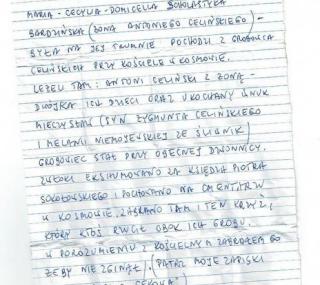 MARIA-CECYLIA-DOMICELLA SCHOLASTYKA
BARDZIŃSKA (ŻONA ANTONIEGO CELIŃSKIEGO)-
BYŁA NA JEJ TRUMNIE POCHODZI Z GROBOWCA
CELIŃSKICH PRZY KOŚCIELE W KOSMOWIE.
LEŻELI TAM: ANTONI CELIŃSKI Z ŻONĄ-
DWOJKA ICH DZIECI ORAZ UKOCHANY WNUK
MIECZYSŁAW (SYN ZYGMUNTA CELIŃSKIEGO
I MELANII NIEMOJEWSKIEJ ZE ŚLIWNIK)
GROBOWIEC STAŁ PRZY OBECNEJ DZWONNICY.
ZWŁOKI EKSHUMOWANO ZA KSIĘDZA PIOTRA
SOKOŁOWSKIEGO I POCHOWANO NA CMENTARZU
W KOSMOWIE. ZABRANO TAM I TEN KRZYŻ,
KTÓRY KTOŚ RZUCIŁ OBOK ICH GROBU.
W POROZUMIENIU Z KOŚCIELNYM ZABRAŁEM GO
ŻEBY NIE ZGINĄŁ. (PATRZ MOJE ZAPISKI